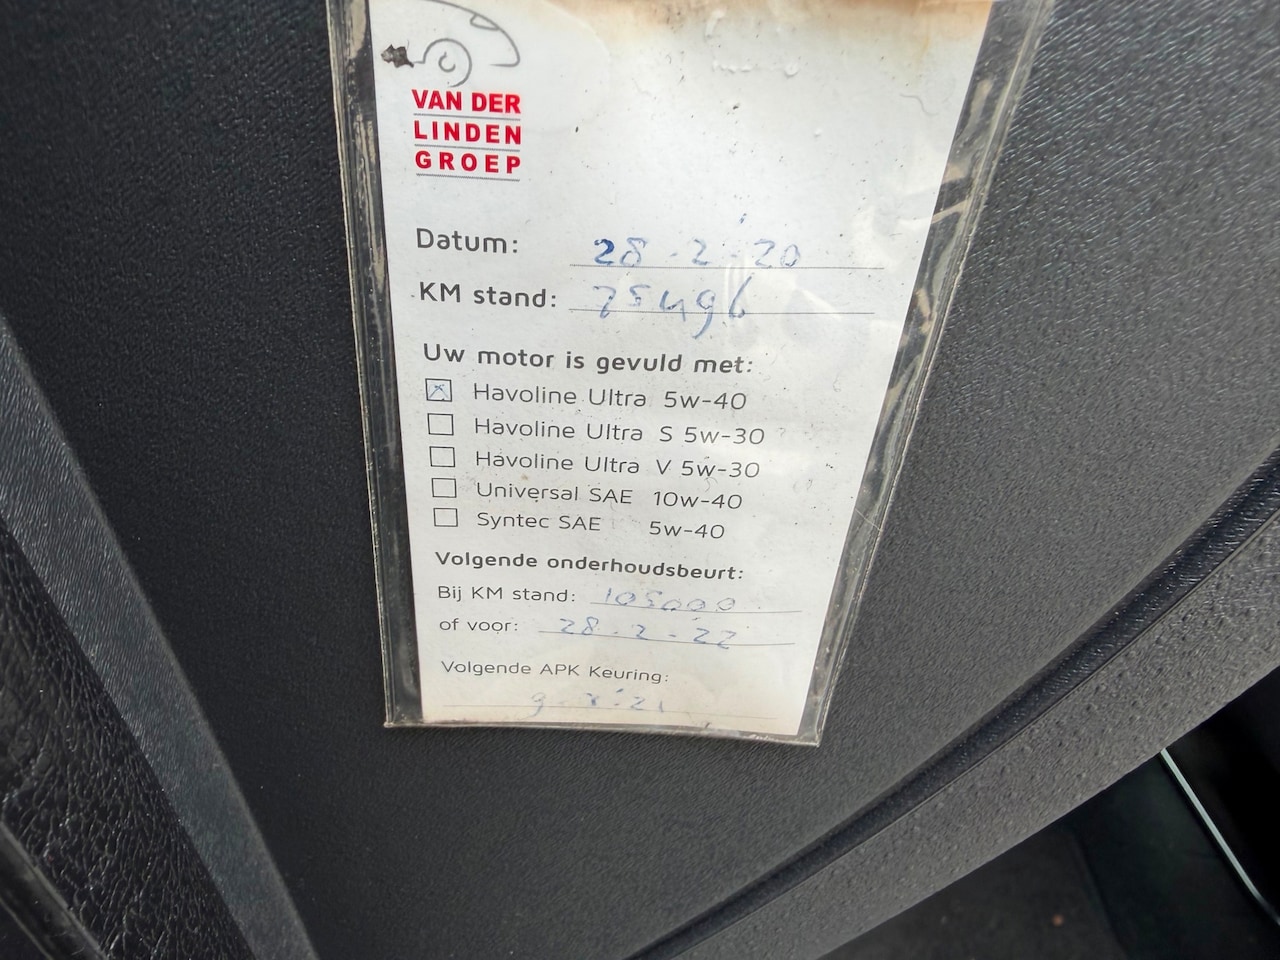 VAN DER
LINDEN
GROEP
Datum: 28-2-20
KM stand: 75496
Uw motor is gevuld met:
Havoline Ultra 5w-40
Havoline Ultra S 5w-30
Havoline Ultra V 5w-30
Universal SAE 10w-40
Syntec SAE 5w-40
Volgende onderhoudsbeurt:
Bij KM stand: 105000
of voor: 28-2-22
Volgende APK Keuring: